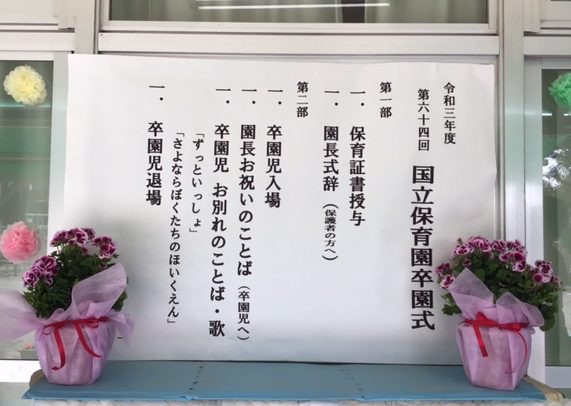 令和三年度
第六十四回 国立保育園卒園式
第一部
一．保育証書授与
一．園長式辞（保護者の方へ）
第二部
一．卒園児入場
一．園長お祝いのことば（卒園児へ）
一．卒園児 お別れのことば・歌
「ずっといっしょ」
「さよならぼくたちのほいくえん」
一．卒園児退場